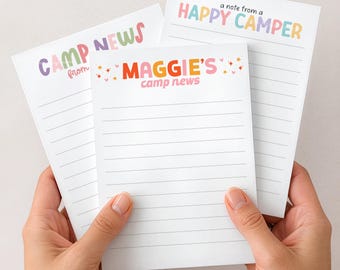 CAMP NEWS
from
MAGGIE'S
camp news
a note from a
HAPPY CAMPER